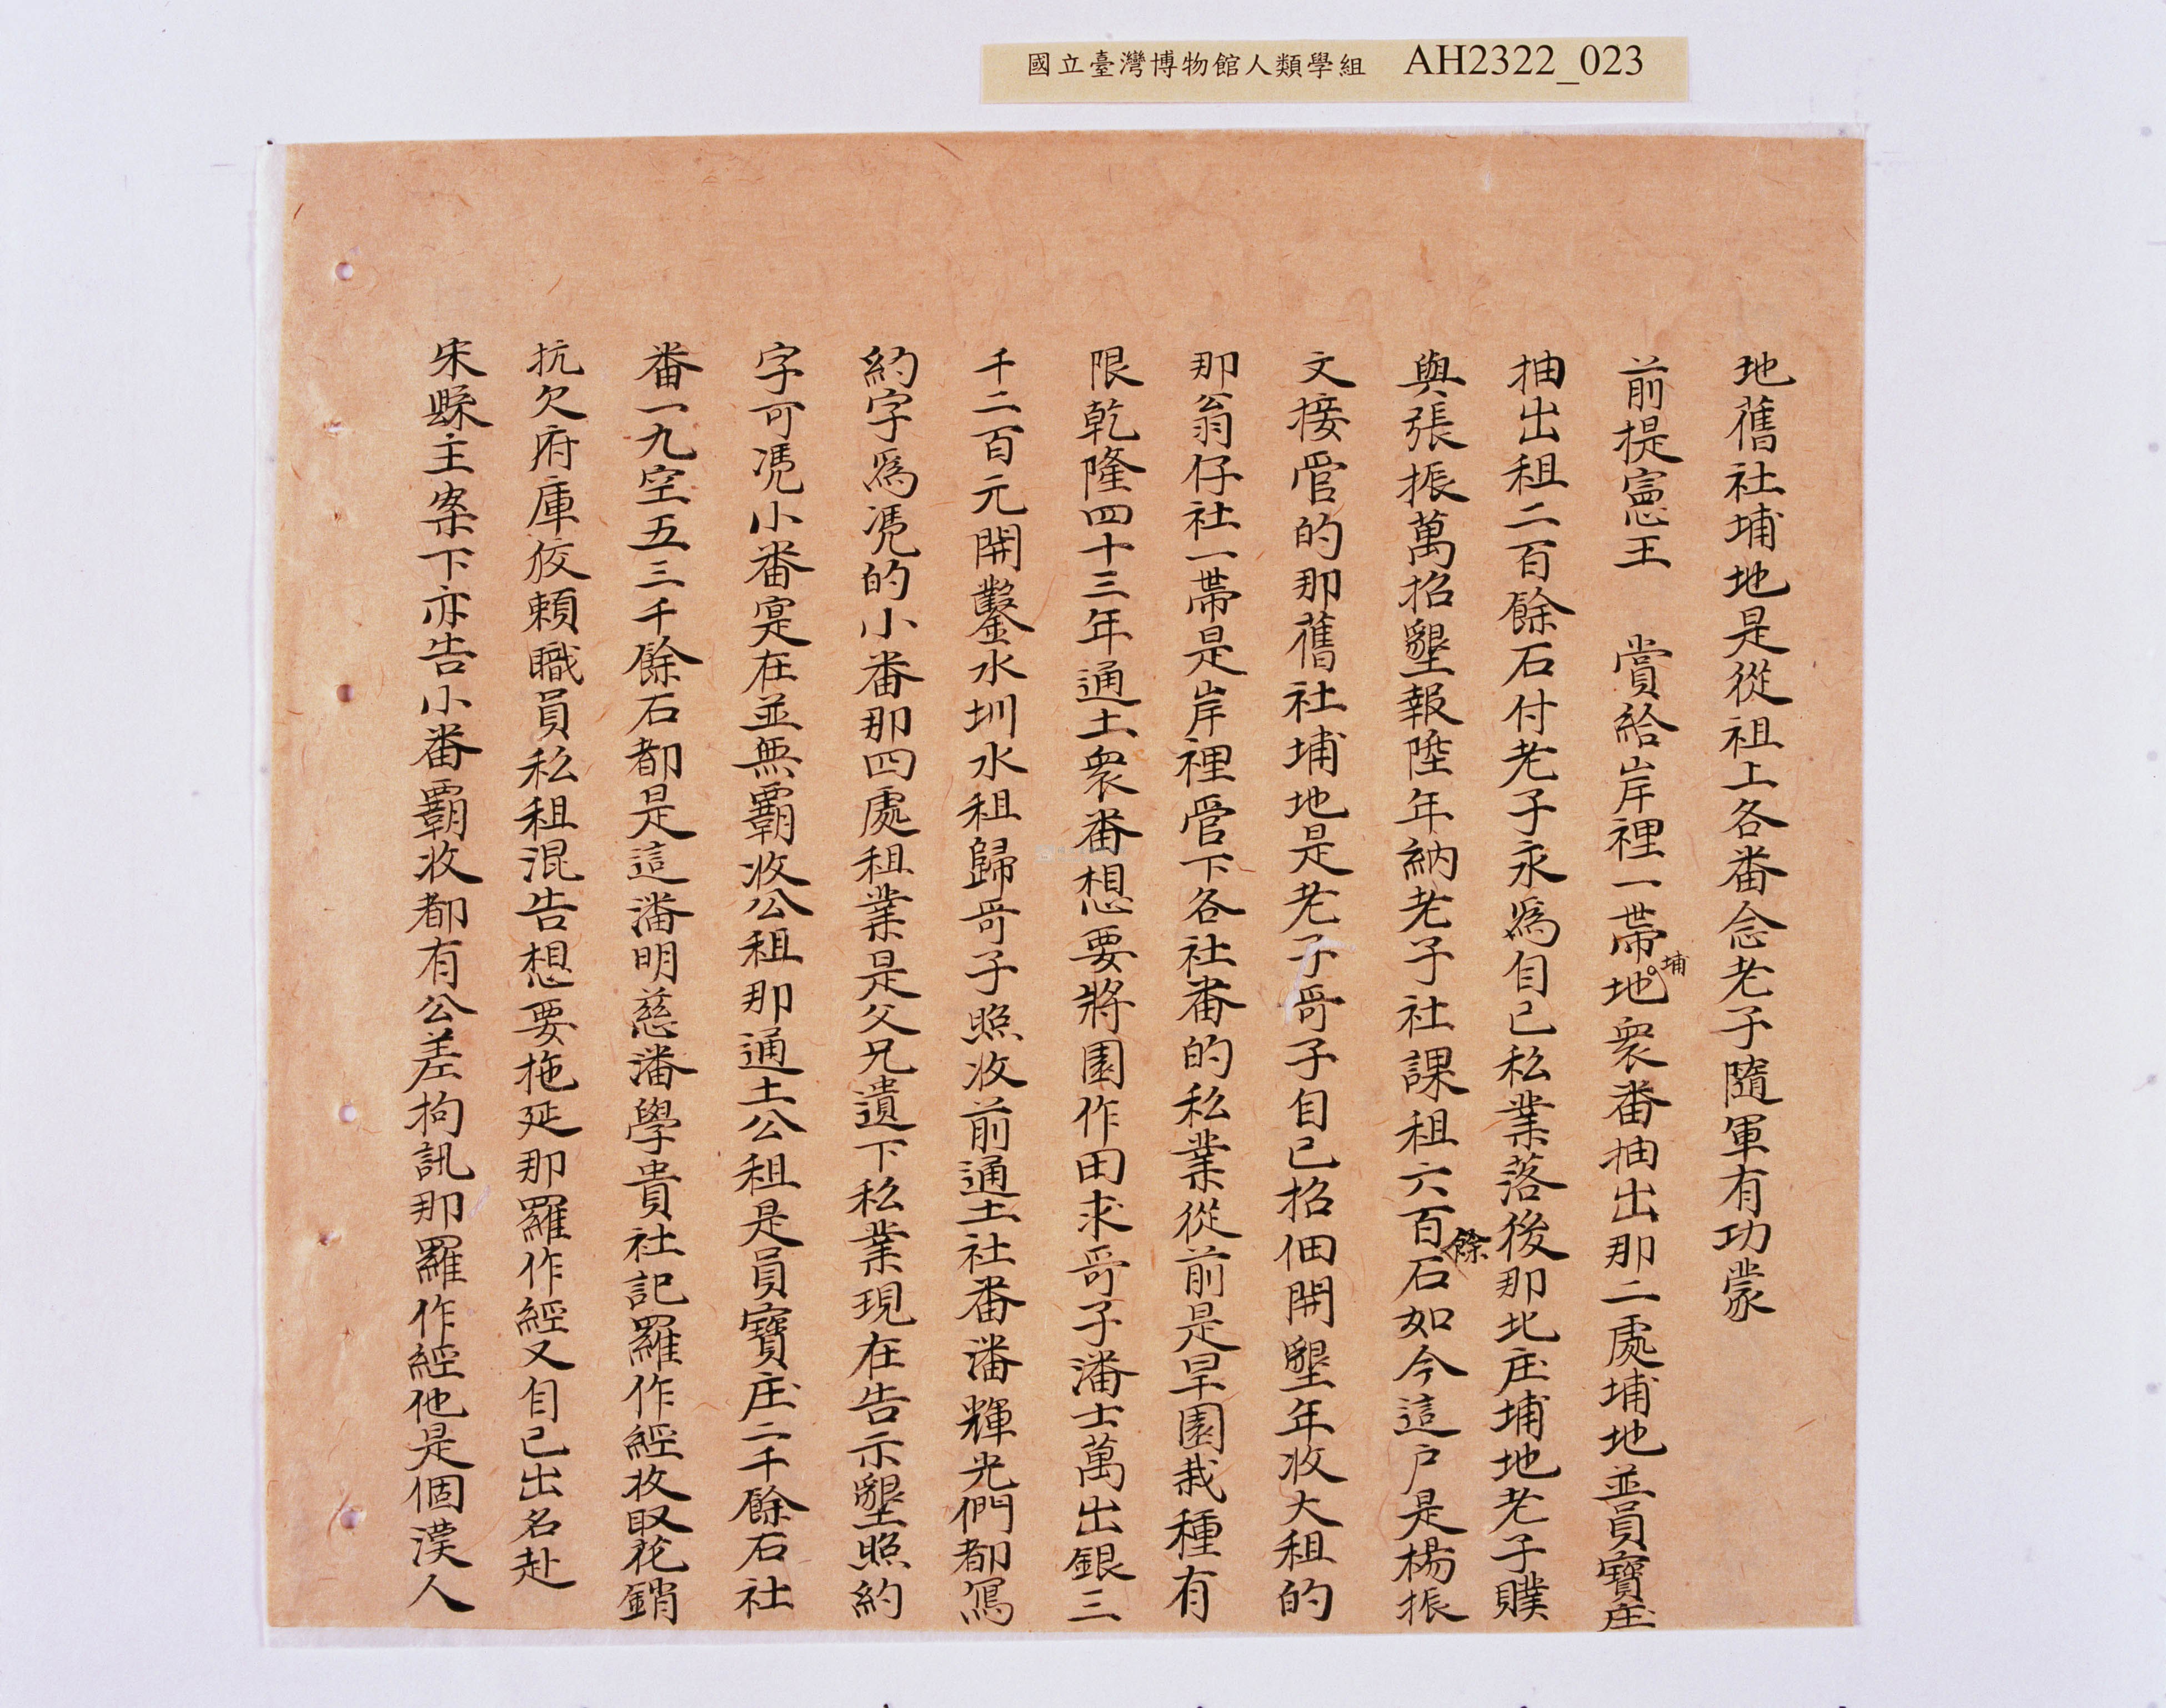 國立臺灣博物館人類學組 AH2322_023
地舊社埔地是從祖上各番念老子隨軍有功蒙
前提憲王 賞給岸裡一帶埔地衆番抽出那二處埔地並員寶庄
抽出租二百餘石付老子永爲自己私業落後那北庄埔地老子贌
與張振萬招墾報陞年納老子社課租六百餘石如今這户是楊振
文接管的那舊社埔地是老子哥子自己招佃開墾年收大租的
那翁仔社一帶是岸裡管下各社番的私業從前是旱園栽種有
限乾隆四十三年通土衆番想要將園作田求哥子潘士萬出銀三
千二百元開鑿水圳水租歸哥子照收前通土社番潘輝光們都寫
約字爲凴的小番那四處租業是父兄遺下私業現在告示墾照約
字可凴小番寔在並無霸收公租那通土公租是員寶庄二千餘石社
番一九空五三千餘石都是這潘明慈潘學貴社記羅作經收取花銷
抗欠府庫佼賴職員私租混告想要拖延那羅作經又自己出名赴
宋縣主案下亦告小番霸收都有公差拘訊那羅作經他是個漢人